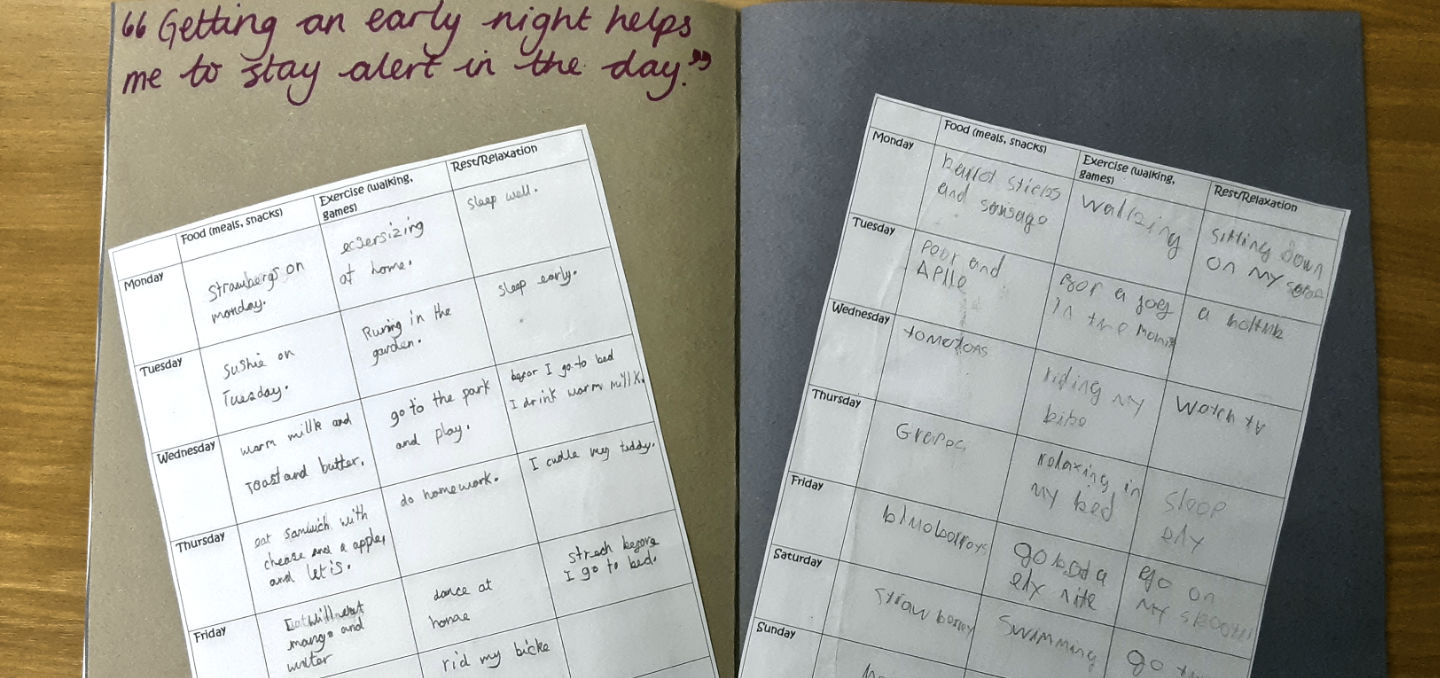 “Getting an early night helps
me to stay alert in the day.”
Food (meals, snacks)
Exercise (walking,
games)
Rest/Relaxation
Monday
Strawbergs on
monday.
ecsersizing
at home.
Sleep well.
Tuesday
Sushie on
Tuesday.
Runing in the
garden.
Sleep early.
Wednesday
warm millk and
Toast and butter.
go to the park
and play.
befor I go to bed
I drink warm millk.
Thursday
eat sandwich with
cheese and a apple,
and letis.
do homework.
I cudle my teddy.
Friday
mango and
water
dance at
home
strech before
I go to bed.
rid my bicke
Food (meals, snacks)
Exercise (walking,
games)
Rest/Relaxation
Monday
and sausage
walking
sitting down
on my
Tuesday
and
Aplle
for a jog
in the
a hottub
Wednesday
tomatoas
riding my
bike
Watch tv
Thursday
relaxing in
my bed
sleep
ely
Friday
go to bed a
ely nite
go on
my
Saturday
Swimming
go
Sunday